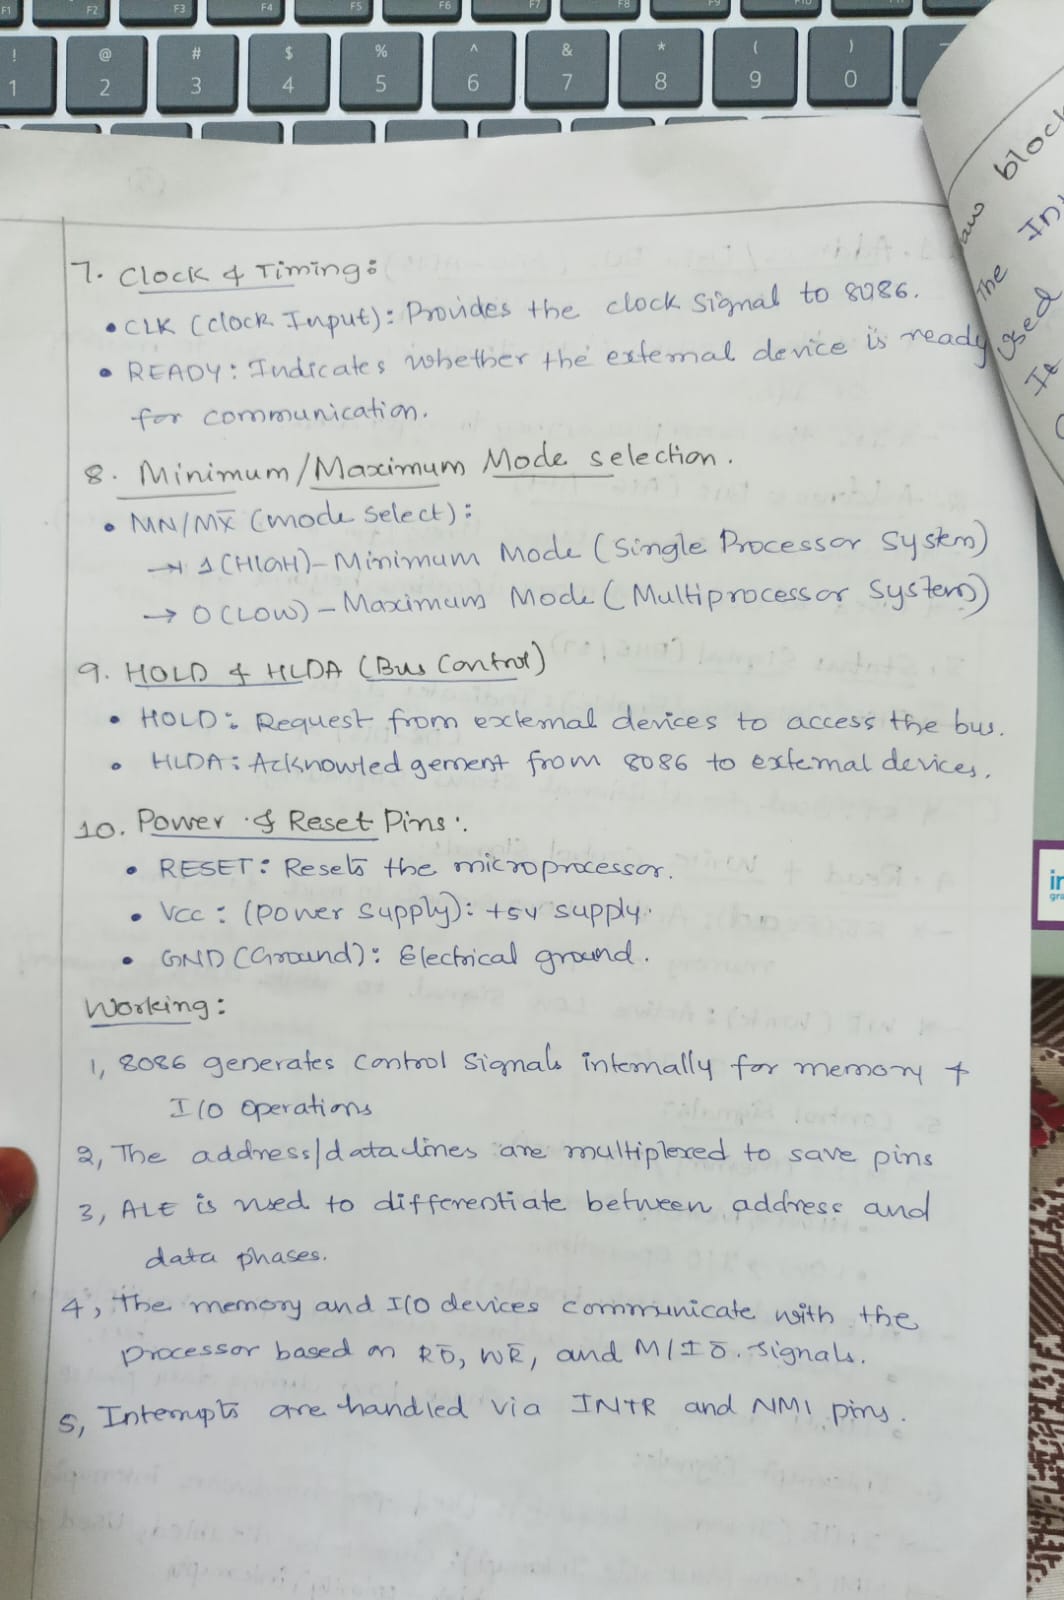 F1 F2 F3 F4 F5 F6 F7 F8 F9 F10
! @ # $ % ^ & * ( )
1 2 3 4 5 6 7 8 9 0
block
The In
used
It
7. Clock & Timing:
• CLK (Clock Input): Provides the clock signal to 8086.
• READY: Indicates whether the external device is ready
for communication.
8. Minimum/Maximum Mode selection.
• MN/MX̅ (mode select):
→ 1 (HIGH) - Minimum Mode (Single Processor System)
→ 0 (LOW) - Maximum Mode (Multiprocessor System)
9. HOLD & HLDA (Bus Control)
• HOLD: Request from external devices to access the bus.
• HLDA: Acknowledgement from 8086 to external devices.
10. Power & Reset Pins:
• RESET: Resets the microprocessor.
• Vcc: (power supply): +5v supply.
• GND (Ground): Electrical ground.
Working:
1, 8086 generates control signals internally for memory &
I/O operations
2, The address/data lines are multiplexed to save pins
3, ALE is used to differentiate between address and
data phases.
4, The memory and I/O devices communicate with the
processor based on RD̅, WR̅, and M/IO̅. signals.
5, Interrupts are handled via INTR and NMI pins.